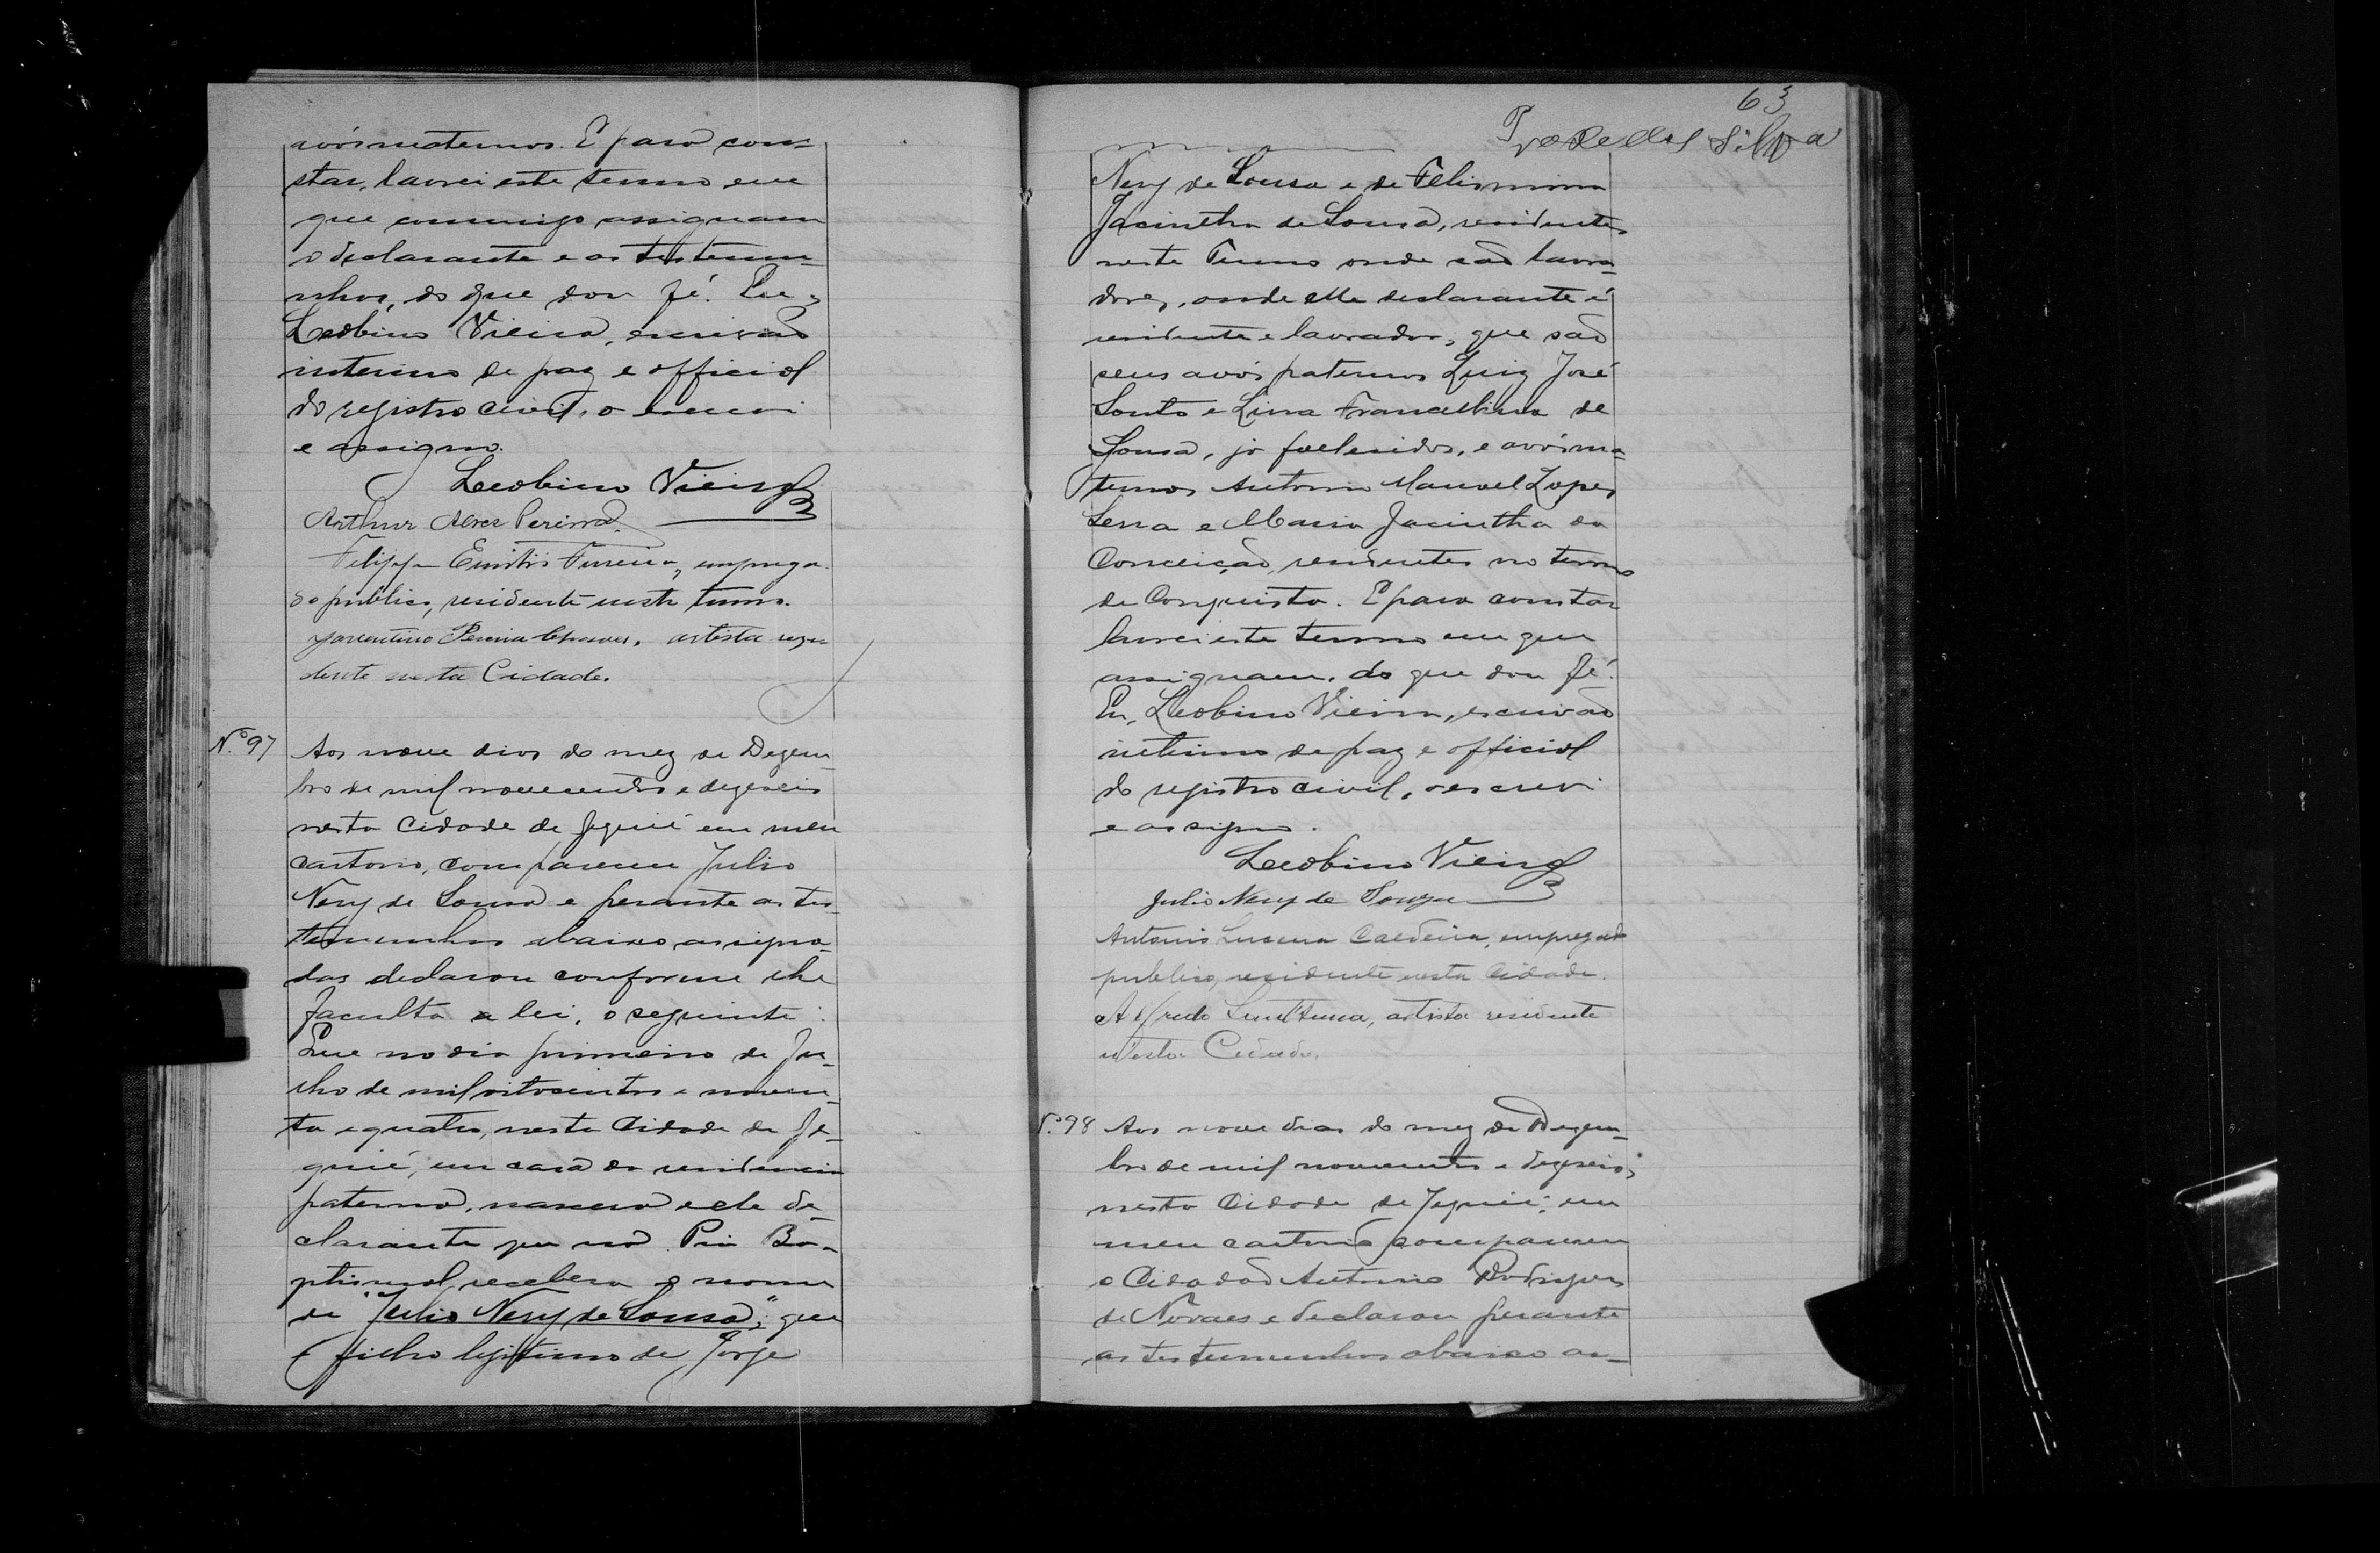 avós maternos. E para con=
star, lavrei este termo em
que commigo assignam
o declarante e as testemu=
nhas, do que dou fé. Eu,
Leobino Vieira, escrivão
interino de paz e official
do registro civil, o escrevi
e assigno.
Leobino Vieira
Arthur Alves Pereira
Felippe Ferreira, emprega
do publico, residente neste termo.
Pereira Chaves, artista resi
dente nesta Cidade.
N.º 97
Aos nove dias do mez de Dezem
bro de mil novecentos e dezeseis
nesta Cidade de Jequié em meu
cartorio, compareceu Julio
Nery de Sousa e perante as tes
temunhas abaixo assigna-
das declarou conforme lhe
faculta a lei, o seguinte:
Que no dia primeiro de Ju-
lho de mil oitocentos e noven-
ta e quatro, nesta Cidade de Je-
quié, em casa da residencia
paterna, nascera elle de-
clarante que na Pia Ba-
ptismal, recebera o nome
de "Julio Nery de Sousa", que
é filho legitimo de Jorge
63
da Silva
Nery de Sousa e de Felismina
Jacintha de Sousa, residentes
neste Termo onde são lavra-
dores, onde elle declarante é
residente e lavrador, que são
seus avós paternos Luiz José
Souto e Lina Francelina de
Sousa, já fallecidos, e avós ma=
ternos Antonio Manoel Lopes
Serra e Maria Jacintha da
Conceição, residentes no termo
de Conquista. E para constar
lavrei este termo em que
assignam, do que dou fé.
Eu, Leobino Vieira, escrivão
interino de paz e official
do registro civil, o escrevi
e assigno.
Leobino Vieira
Julio Nery de Souza
Antonio Lucena Caldeira, empregado
publico, residente nesta Cidade.
Alfredo Sant'Anna, artista residente
n'esta Cidade.
N.º 98 Aos nove dias do mez de Dezem-
bro de mil novecentos e dezeseis,
nesta Cidade de Jequié, em
meu cartorio compareceu
o Cidadão Antonio Rodrigues
de Novaes e declarou perante
as testemunhas abaixo as-